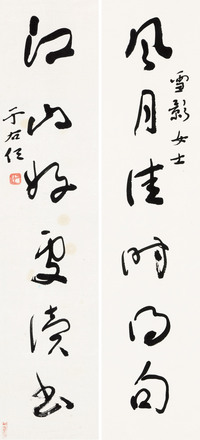 風月佳時得句
雪影女士
江山好處讀書
于右任